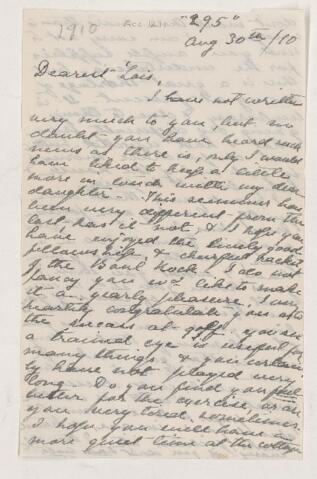 1910 Acc. 12
"295"
Aug 30th/10
Dearest Lois,
I have not written
very much to you, but no
doubt you have heard such
news as there is, only I would
have liked to keep a little
more in touch with my dear
daughter. This summer has
been very different from the
last, has it not, & I hope you
have enjoyed the lively good-
fellowship & cheerful racket
of the I do not
fancy you wd. like to make
it a yearly pleasure. I can
heartily congratulate you on
the success at golf, your
a trained eye is useful for
many things & you certain-
ly have not played very
long. Do you find you feel
better for the exercise, or are
you very tired sometimes.
I hope you will have a
more quiet time at the cottage